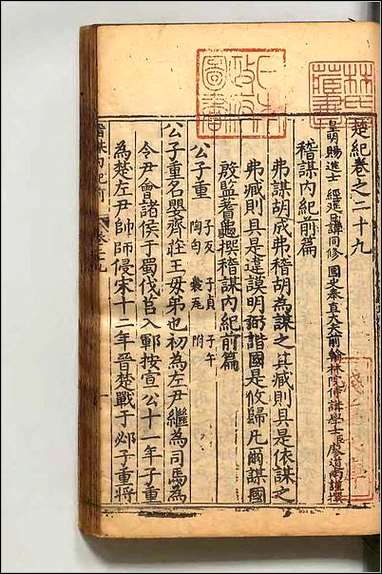 楚紀卷之二十九
皇明賜進士 經筵日講同修 國史奉直大夫前翰林院侍講學士長廖道南謹撰
稽謀內紀前篇
弗謀胡成弗稽胡為謀之其臧則具是依謀之
弗臧則具是違謨明弼諧國是攸歸凡爾謀國
啟監蓍龜撰稽謀內紀前篇
公子重 子反 子貞 子午
陶匄 附
公子重名嬰齊莊王母弟也初為左尹繼為司馬為
令尹會諸侯于蜀伐莒入鄆按宣公十一年子重
為楚左尹帥師侵宋十二年晉楚戰于邲子重將